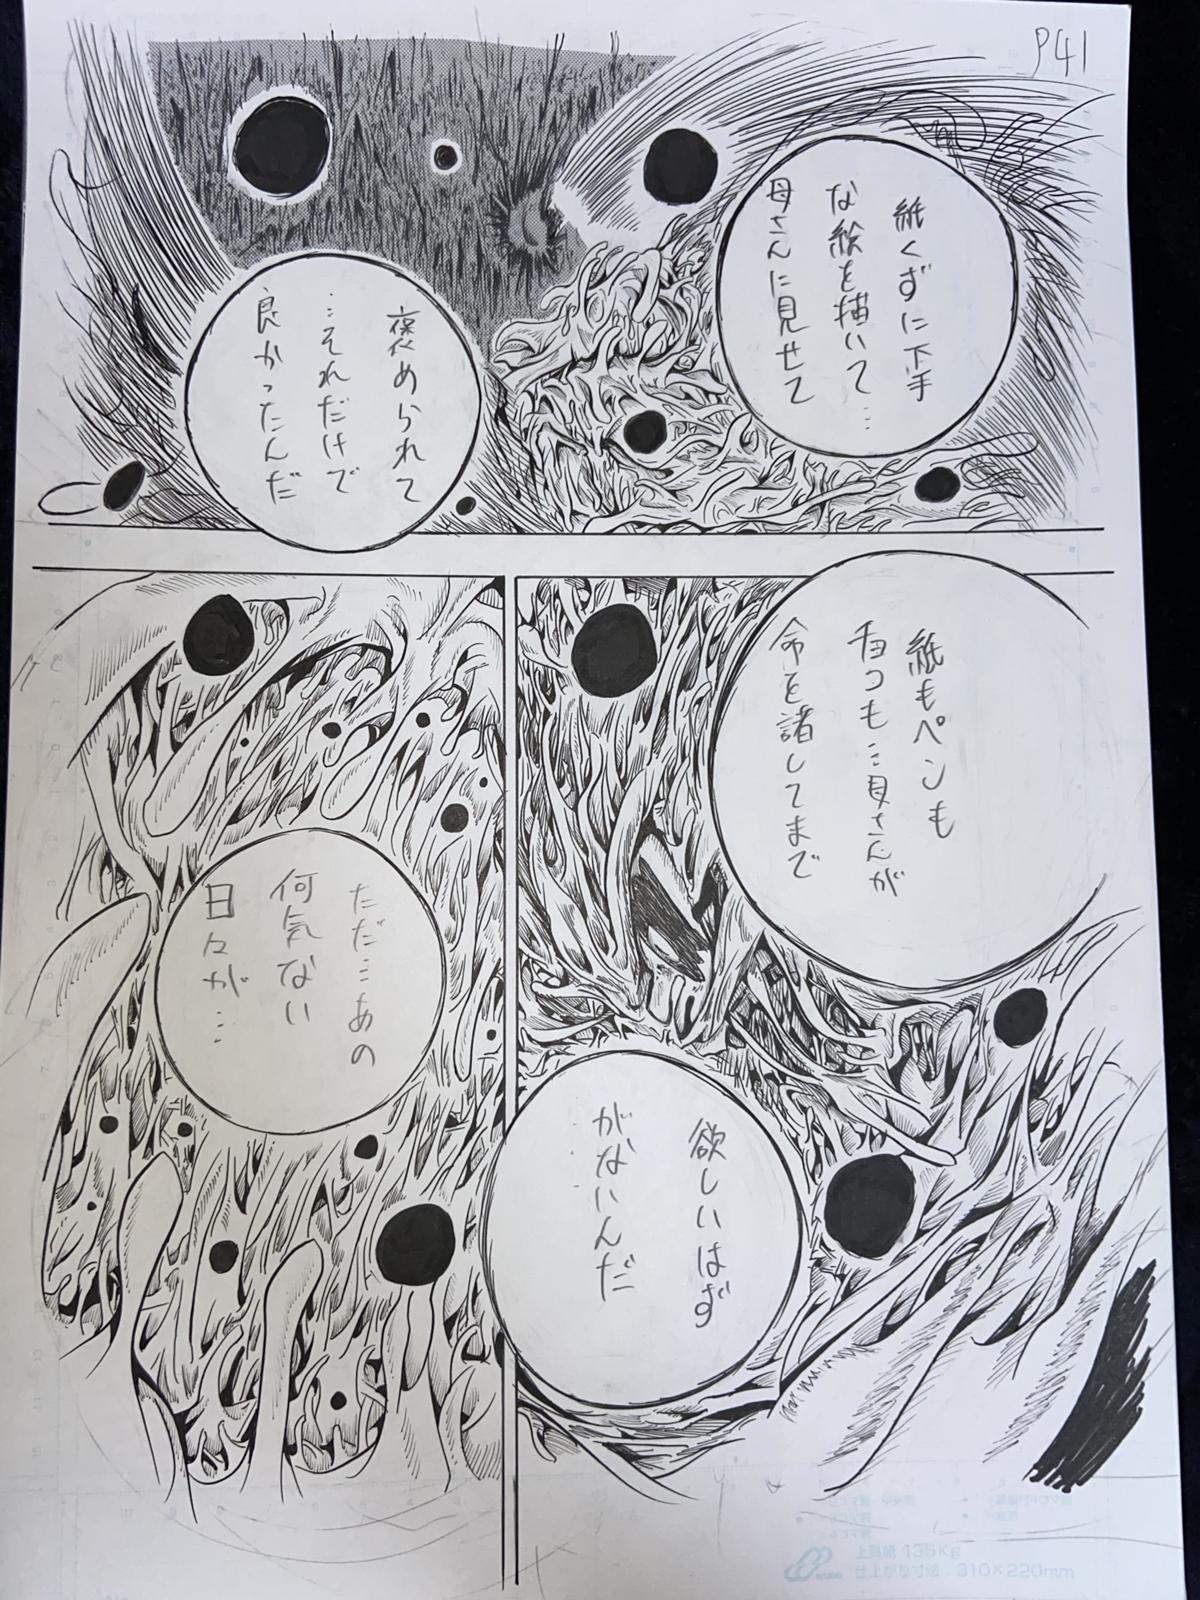 P41
紙くずに下手
な絵を描いて…
母さんに見せて
褒められて
…それだけで
良かったんだ
紙もペンも
チョコも…母さんが
命を諸してまで
欲しいはず
がないんだ
ただ…あの
何気ない
日々が…
上質紙 135Kg
仕上がり寸法：310×220mm